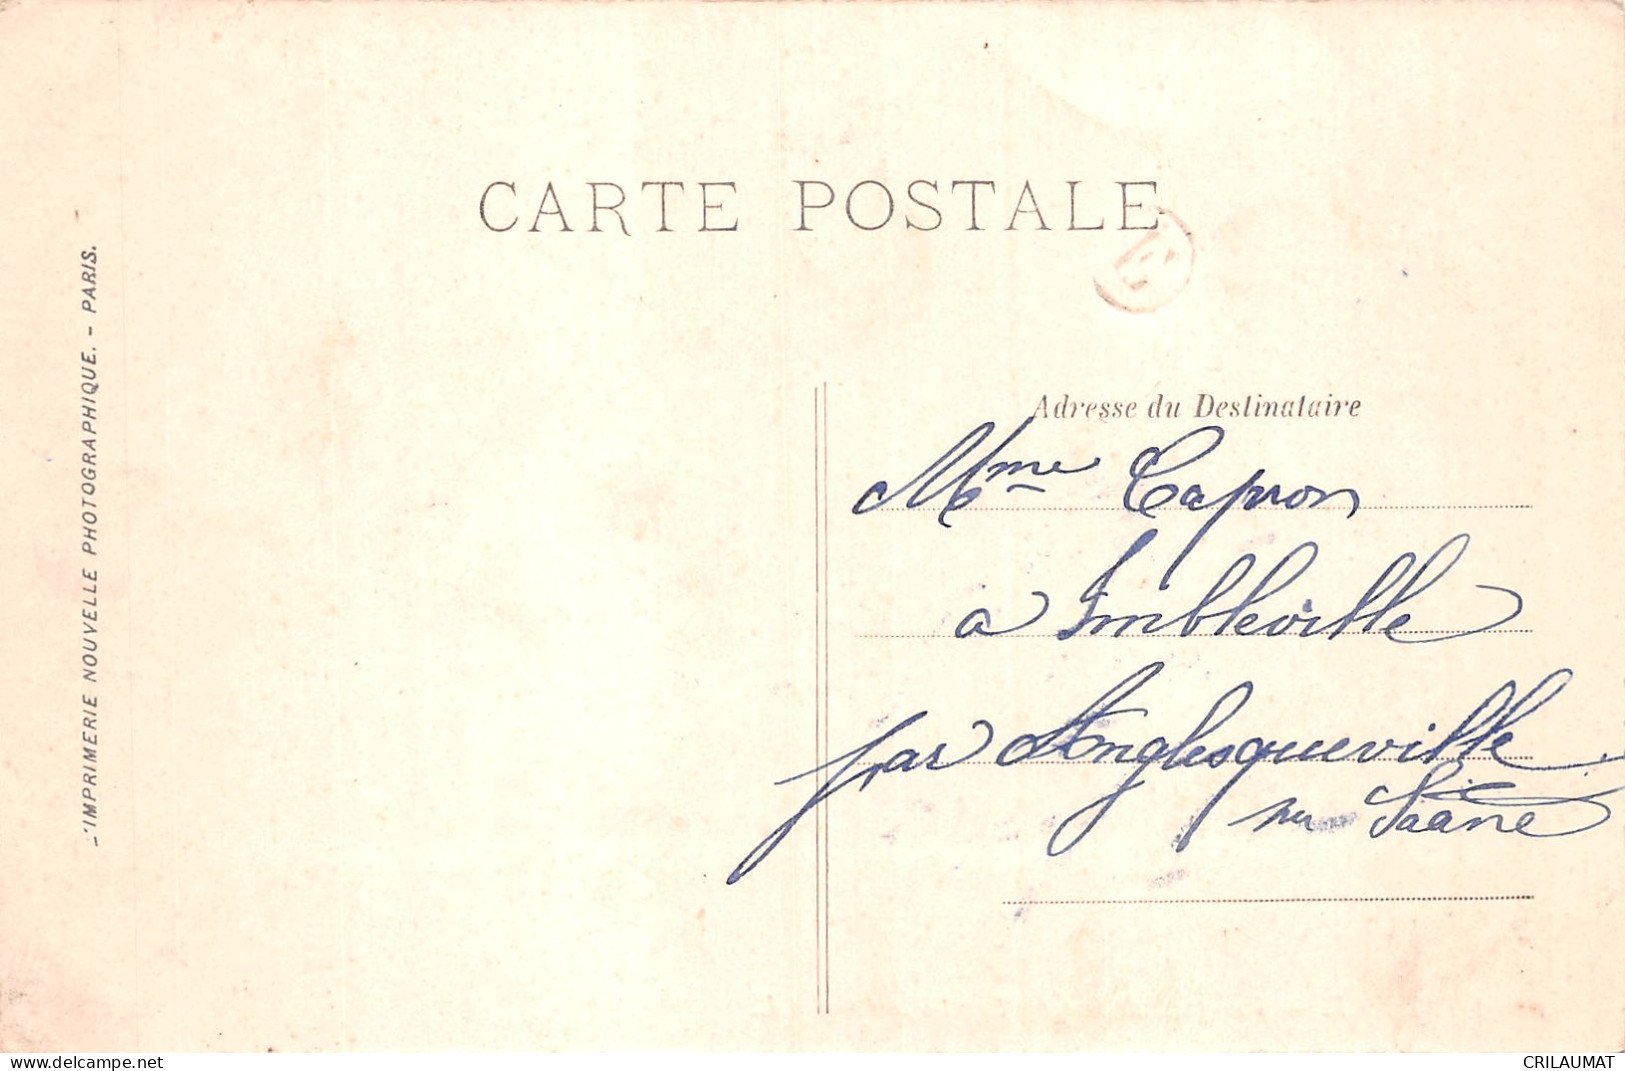 CARTE POSTALE
L'IMPRIMERIE NOUVELLE PHOTOGRAPHIQUE. - PARIS.
Adresse du Destinataire
Mme Capron
a Imbleville
par Anglesqueville
sur Saâne
delcampe.net
CRILAUMAT